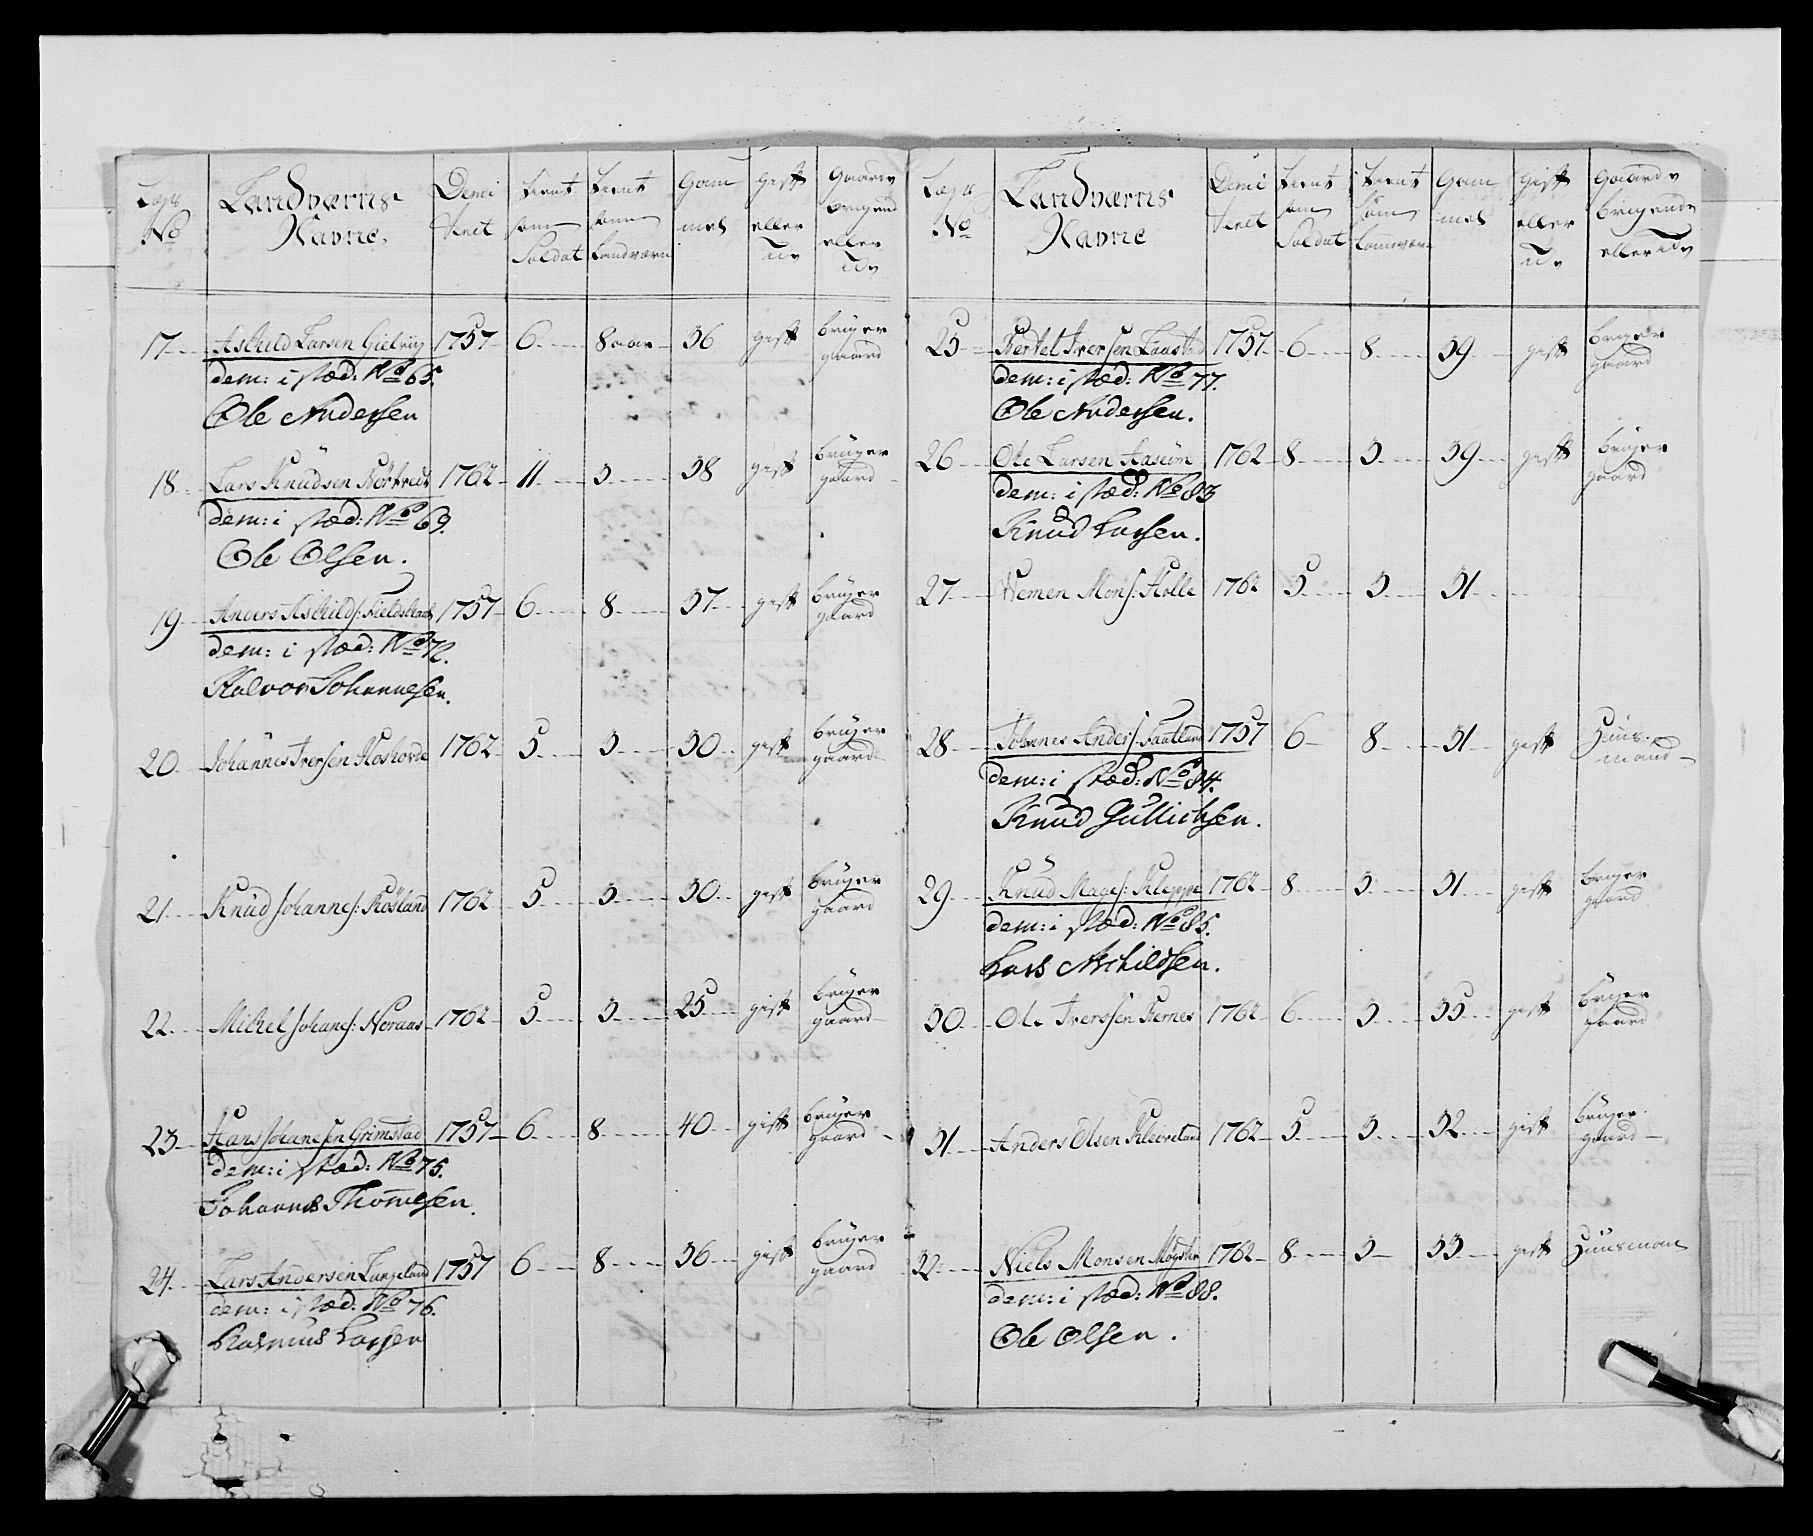 Lægs No | Landværns Navne. | Demi terit | tient som Soldat | tient som Landværn | Gam mel | gift eller Ey | Gaard brugend eller Ey
17 | Askild Larsen | 1757 | 6 | 8 aar | 36 | gift | bruger gaard
dem: i stæd: No 65.
Ole Andersen
18 | Lars Knudsen | 1762 | 11 | 3 | 38 | gift | bruger gaard
dem: i stæd: No 69.
Ole Olsen.
19 | Anders Askilds: | 1757 | 6 | 8 | 37 | gift | bruger gaard
dem: i stæd: No 72.
Halvor Johannesen.
20 | Johannes Iversen | 1762 | 5 | 3 | 30 | gift | bruger gaard
21 | Knud Johannes: Røsland | 1762 | 5 | 3 | 30 | gift | bruger gaard
22 | Mikel Johanes: Noraas | 1762 | 5 | 3 | 25 | gift | bruger gaard
23 | Hans Johanesen Grimstad | 1757 | 6 | 8 | 40 | gift | bruger gaard
dem: i stæd: No 75.
Johannes Thomesen.
24 | Lars Andersen Langeland | 1757 | 6 | 8 | 36 | gift | bruger gaard
dem: i stæd: No 76.
Rasmus Larsen
Lægs No | Landværns Navne | Demi terit | tient som Soldat | tient som Landværn | Gam mel | gift eller Ey | Gaard brugende eller Ey
25 | Bertel Iversen | 1757 | 6 | 8 | 39 | gift | bruger gaard
dem: i stæd: No 77.
Ole Andersen.
26 | Ole Larsen Aaseim | 1762 | 8 | 3 | 39 | gift | bruger gaard
dem: i stæd: No 83
Knud Larsen.
27 | Mons: Holle | 1762 | 5 | 3 | 31
28 | Johannes Anders: | 1757 | 6 | 8 | 31 | gift | Huusmand
dem: i stæd: No 84.
Knud Gullichsen.
29 | Knud Mages: Kleppe | 1762 | 8 | 3 | 31 | gift | bruger gaard
dem: i stæd: No 85.
Lars Aschildsen.
30 | Ole Iverssen Bernes | 1762 | 6 | 3 | 35 | gift | bruger gaard
31 | Anders Olsen Kleiveland | 1762 | 5 | 3 | 32 | gift | bruger gaard
32 | Niels Monsen Møgster | 1762 | 8 | 3 | 33 | gift | Huusman
dem: i stæd: No 88.
Ole Olsen.